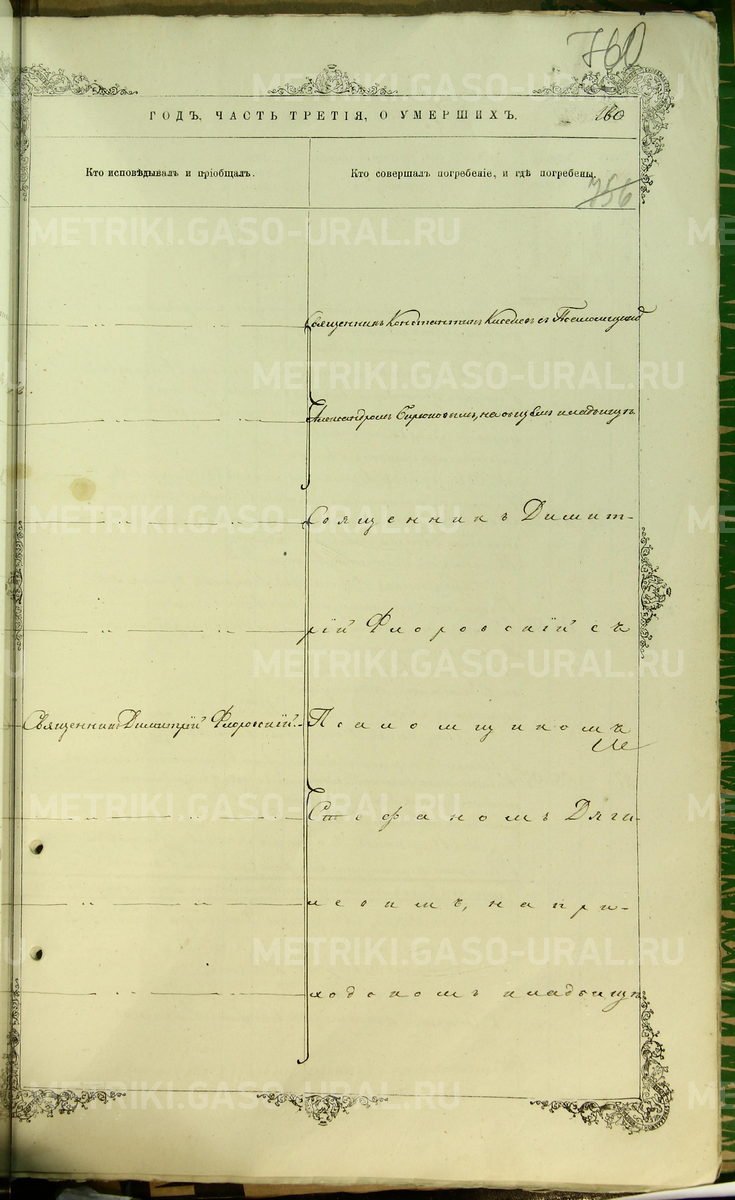 760
ГОДЪ, ЧАСТЬ ТРЕТІЯ, О УМЕРШИХЪ.
160
Кто исповѣдывалъ и пріобщалъ.
Кто совершалъ погребеніе, и гдѣ погребены.
756
Священникъ Константинъ съ Псаломщикомъ
Александромъ на общемъ кладбищѣ
Священникъ Димит-
рій Флоровскій съ
Священникъ Димитрій Флоровскій.
Псаломщикомъ
Стефаномъ Дяги-
левимъ, на при-
ходскомъ кладбищѣ
METRIKI.GASO-URAL.RU